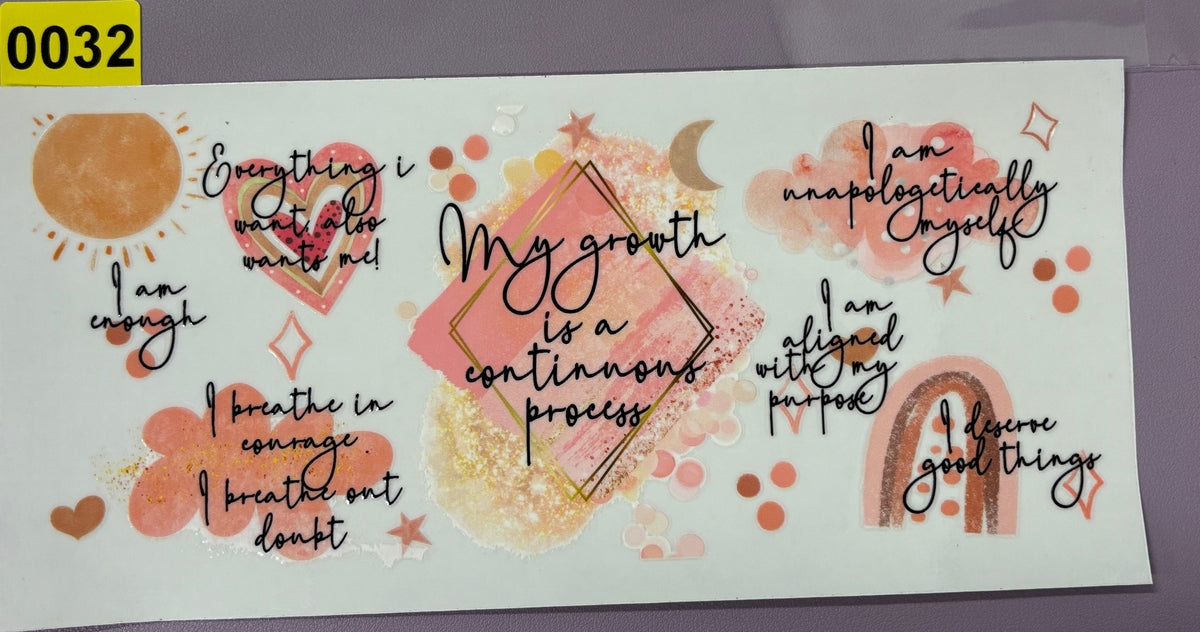 0032
Everything i
want, also
wants me!
I am
enough
I breathe in
courage
I breathe out
doubt
My growth
is a
continuous
process
I am
unapologetically
myself
I am
aligned
with my
purpose
I deserve
good things